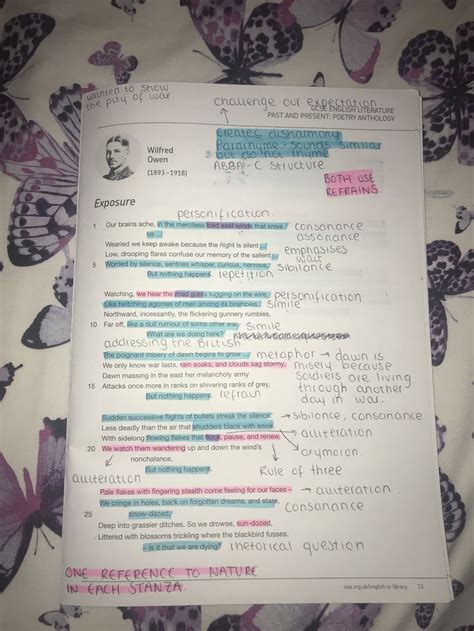 wanted to show
the pity of war
challenge our expectation
GCSE ENGLISH LITERATURE
PAST AND PRESENT: POETRY ANTHOLOGY
Creates disharmony
Pararhyme - sounds similar
but do not rhyme
ABBA-C structure
BOTH USE
REFRAINS
Wilfred
Owen
(1893–1918)
Exposure
personification
1 Our brains ache, in the merciless iced east winds that knive
us ...
consonance
assonance
Wearied we keep awake because the night is silent ...
Low, drooping flares confuse our memory of the salient ...
emphasises
wait
5 Worried by silence, sentries whisper, curious, nervous,
sibilance
But nothing happens.
repetition
Watching, we hear the mad gusts tugging on the wire,
personification
Like twitching agonies of men among its brambles.
simile
Northward, incessantly, the flickering gunnery rumbles,
10 Far off, like a dull rumour of some other war.
simile
What are we doing here?
addressing the British
The poignant misery of dawn begins to grow ...
metaphor → dawn is
misery because
soldiers are living
through another
day in war.
We only know war lasts, rain soaks, and clouds sag stormy.
Dawn massing in the east her melancholy army
15 Attacks once more in ranks on shivering ranks of grey,
But nothing happens.
refrain
Sudden successive flights of bullets streak the silence.
sibilence, consonance
Less deadly than the air that shudders black with snow,
alliteration
With sidelong flowing flakes that flock, pause, and renew,
oxymoron
20 We watch them wandering up and down the wind's
nonchalance,
But nothing happens.
Rule of three
alliteration
Pale flakes with fingering stealth come feeling for our faces –
alliteration
We cringe in holes, back on forgotten dreams, and stare,
snow-dazed,
consonance
25
Deep into grassier ditches. So we drowse, sun-dozed,
Littered with blossoms trickling where the blackbird fusses.
– Is it that we are dying?
rhetorical question
ONE REFERENCE TO NATURE
IN EACH STANZA.
33